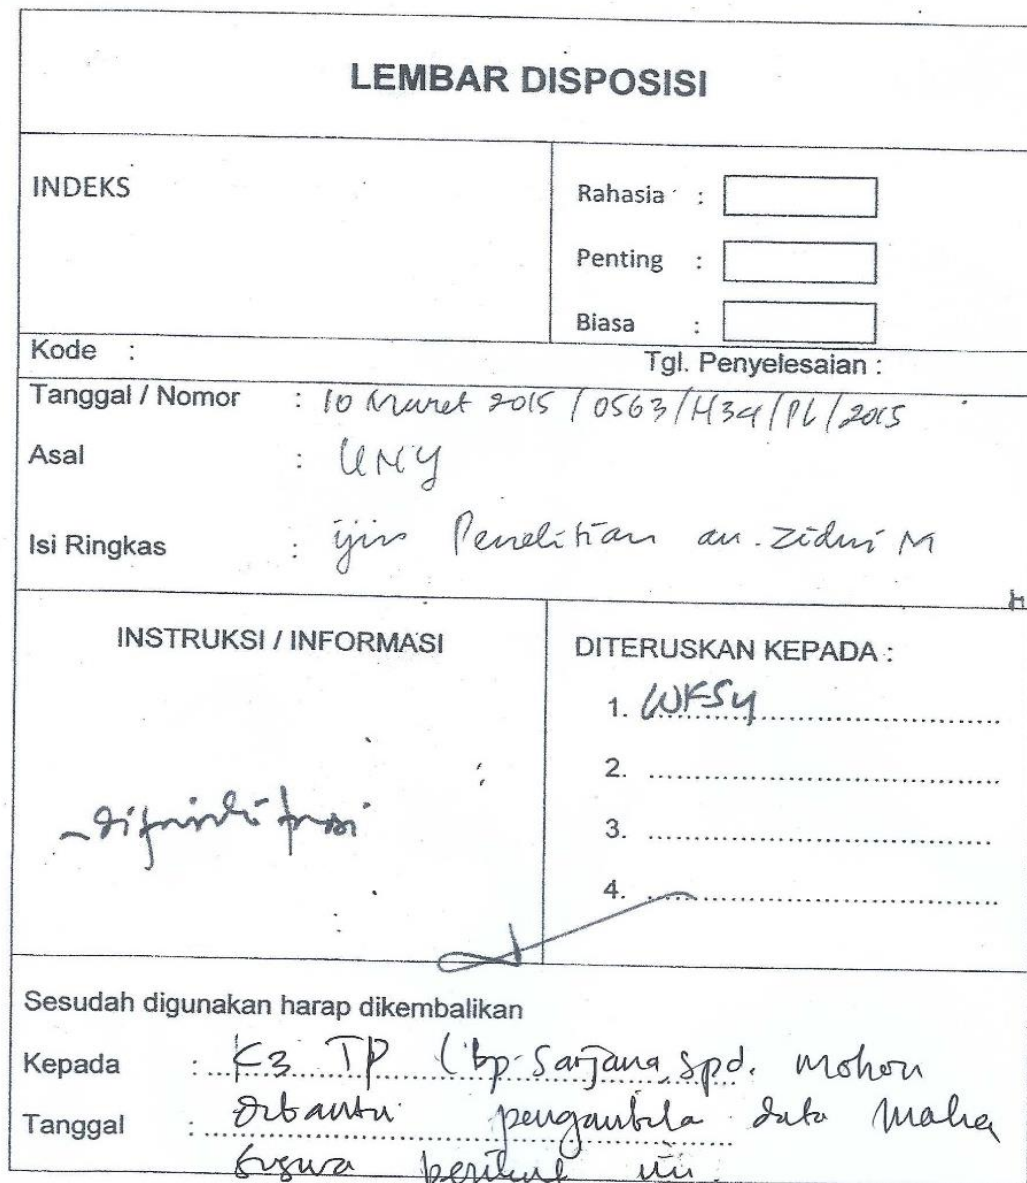 LEMBAR DISPOSISI
INDEKS
Rahasia :
Penting :
Biasa :
Kode :
Tgl. Penyelesaian :
Tanggal / Nomor : 10 Maret 2015 / 0563/H34/PL/2015
Asal : UNY
Isi Ringkas : ijin Penelitian an. Zidni M
INSTRUKSI / INFORMASI
DITERUSKAN KEPADA :
1. WKS4
2.
3.
4.
Sesudah digunakan harap dikembalikan
Kepada : K3 TP (bp. Sarjana, Spd. mohon
Tanggal : dibantu pengambila data Maha
siswa berikut ini.